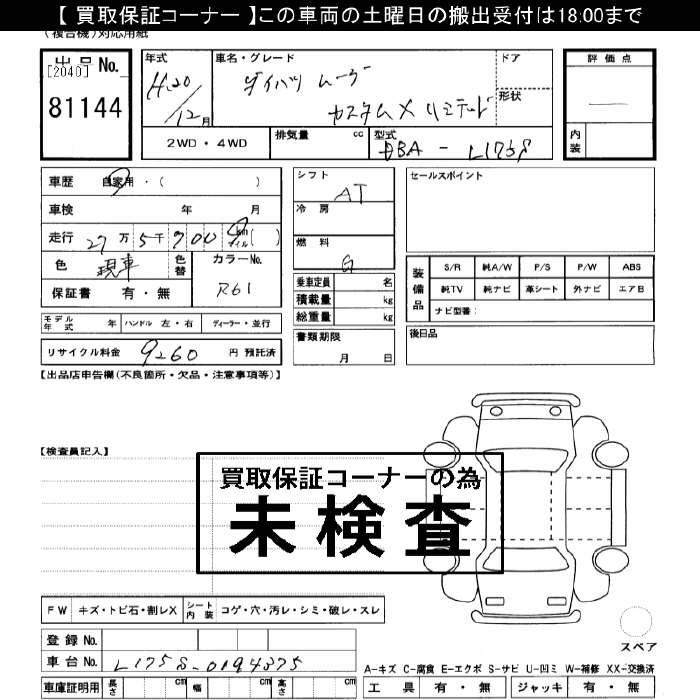 【 買取保証コーナー 】この車両の土曜日の搬出受付は18:00まで
(複合機)対応用紙
出品 No.
[2040]
81144
年式 H.20/12月
車名・グレード ダイハツ ムーヴ
カスタムX リミテード
ドア
形状
評価点
内装
2WD・4WD
排気量 cc
型式 DBA - L175S
車歴 自家用・( )
車検 年 月
走行 27万5千900
km
マイル( )
色 現車
色替
カラーNo. R61
保証書 有・無
シフト AT
冷房
燃料 G
乗車定員 名
積載量 kg
総重量 kg
書類期限
月 日
セールスポイント
装備品
S/R 純A/W P/S P/W ABS
純TV 純ナビ 革シート 外ナビ エアB
ナビ型番:
後日品
モデル年式 年 ハンドル 左・右 ディーラー・並行
リサイクル料金 9260 円 預託済
【出品店申告欄(不良箇所・欠品・注意事項等)】
【検査員記入】
買取保証コーナーの為
未検査
FW キズ・トビ石・割レX
シート内装 コゲ・穴・汚レ・シミ・破レ・スレ
登録 No.
車台 No. L175S-0194375
車庫証明用 長さ cm 幅 cm 高さ cm
スペア
A-キズ C-腐食 E-エクボ S-サビ U-凹ミ W-補修 XX-交換済
工具 有・無 ジャッキ 有・無